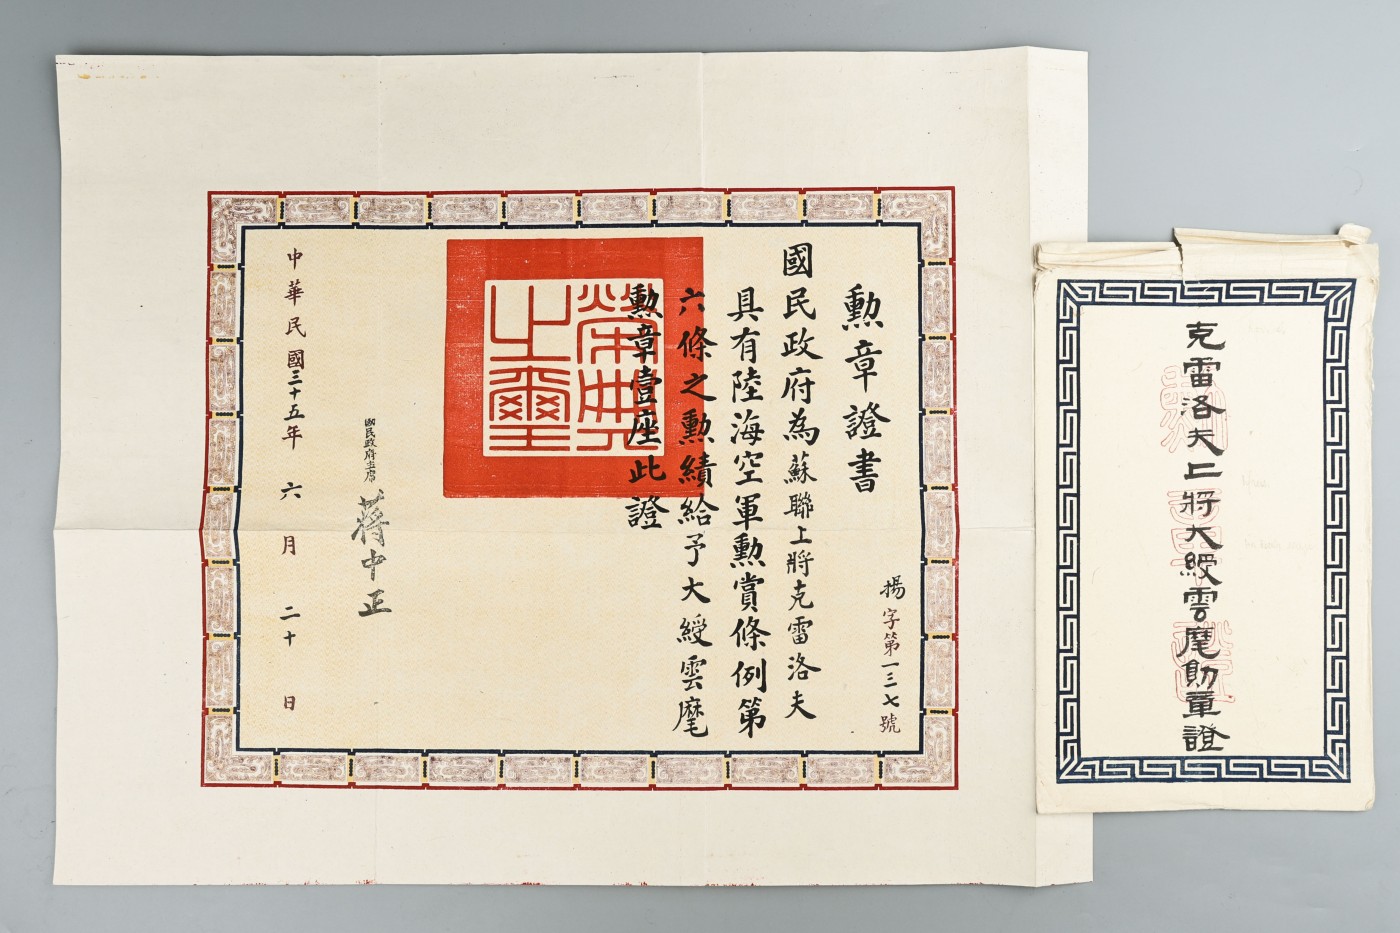 揚字第一三七號
勳章證書
國民政府為蘇聯上將克雷洛夫
具有陸海空軍勳賞條例第
六條之勳績給予大綬雲麾
勳章壹座此證
榮典之璽
國民政府主席 蔣中正
中華民國三十五年六月二十日
克雷洛夫上將大綬雲麾勛章證